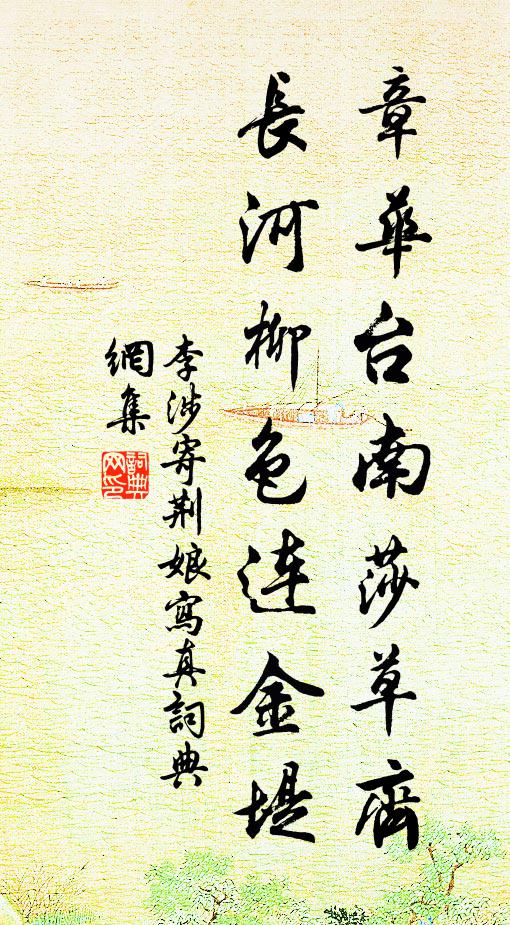 章華台南莎草齊
長河柳色连金堤
李涉寄荆娘寫真詞典
網集
詞典
网印